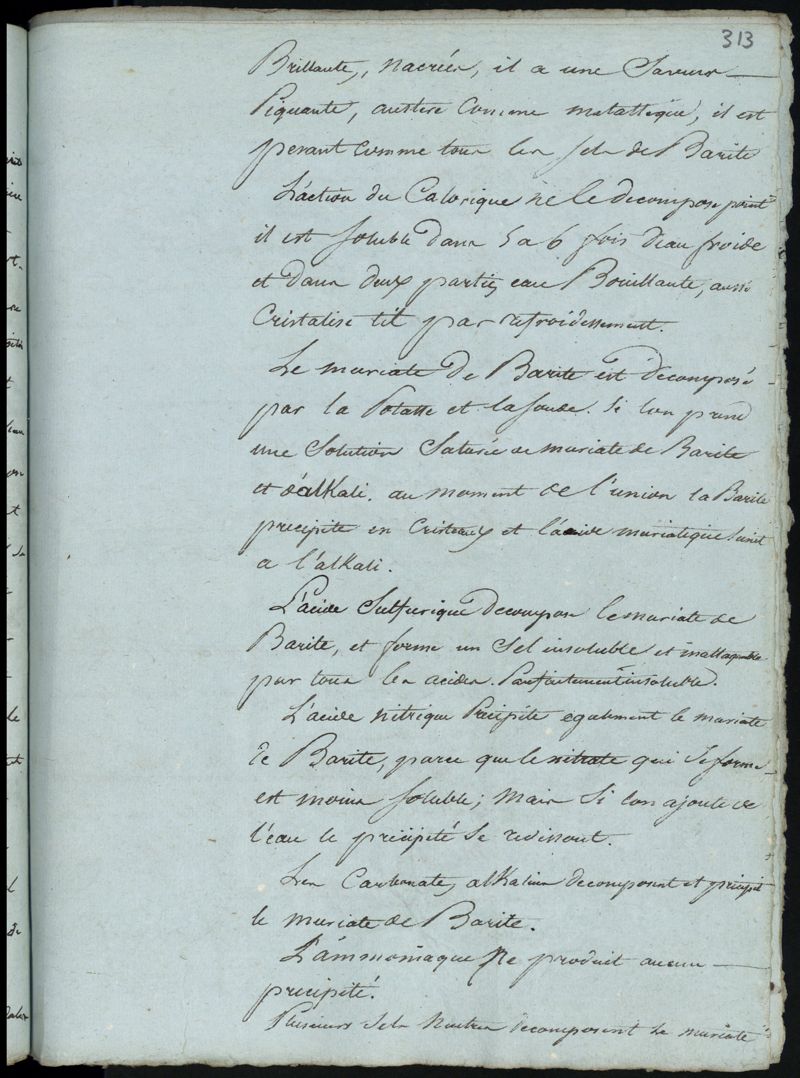 313
Brillante, nacrées, il a une Saveur
Piquante, austere comme metallique, il est
pesant comme tous les sels de Barite
L'action du Calorique ne le decompose point
il est soluble dans 5 a 6 fois d'eau froide
et dans deux parties eau Bouillante, aussi
Cristalise til par refroidissement.
Le muriate de Barite est decomposé
par la Potasse et la soude. Si l'on prend
une Solution Saturée de muriate de Barite
et d'alKali. au moment de l'union la Barite
precipite en Cristeaux et l'acide muriatique s'unit
a l'alKali.
L'acide Sulfurique decompose le muriate de
Barite, et forme un Sel insoluble et inattaquable
par tous les acides. Parfaitement insoluble.
L'acide nitrique Precipite egalement le muriate
de Barite, parce que le nitrate qui se forme
est moins soluble; mais Si l'on ajoute de
l'eau le précipité Se redissout.
Les Carbonates alKalins decomposent et precipit
le muriate de Barite.
L'ammoniaque Ne produit aucun
precipité.
Plusieurs Sels Neutres decomposent Le muriate